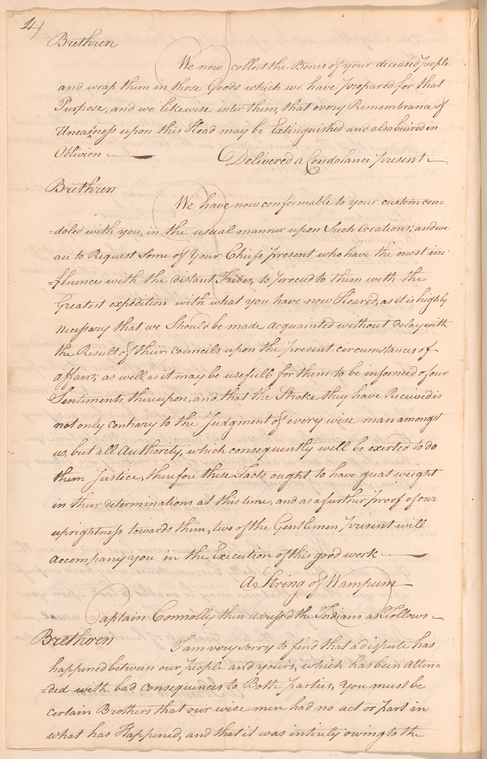 4)
Brethren
We now collect the Bones of your deceased people
and wrap them in those Goods which we have prepared for that
Purpose, and we likewise inter them, that every Remembrance of
Uneasiness upon this Head may be Extinguished and also buried in
Oblivion —
Delivered a Condolance present —
Brethren
We have now conformable to your custom con-
-doled with you, in the usual manner upon Such Occations; and we
are to Request Some of your Chiefs present who have the most in-
-fluence with the distant Tribes, to proceed to them with the
Greatest expedition with what you have now Heard, as it is highly
necessary that we Should be made acquainted without delay with
the Result of their Councils upon the present circumstances of
affairs; as well as it may be usefull for them to be informed of our
Sentiments thereupon, and that the Stroke they have Received is
not only contrary to the Judgment of every wise man amongst
us, but all Authority, which consequently will be exerted to do
them Justice, therefore these Facts ought to have great weight
in their determinations at this time, and as a further proof of our
uprightness towards them, two of the Gentlemen present will
accompany you in the Execution of this good work —
A String of Wampum —
Captain Connolly then adressed the Indians as Follows —
Brethren
I am very sorry to find that a dispute has
happened between our people and yours, which has been atten-
-ded with bad consequences to Both parties, You must be
certain Brothers that our wise men had no act or part in
what has Happened, and that it was intirely owing to the